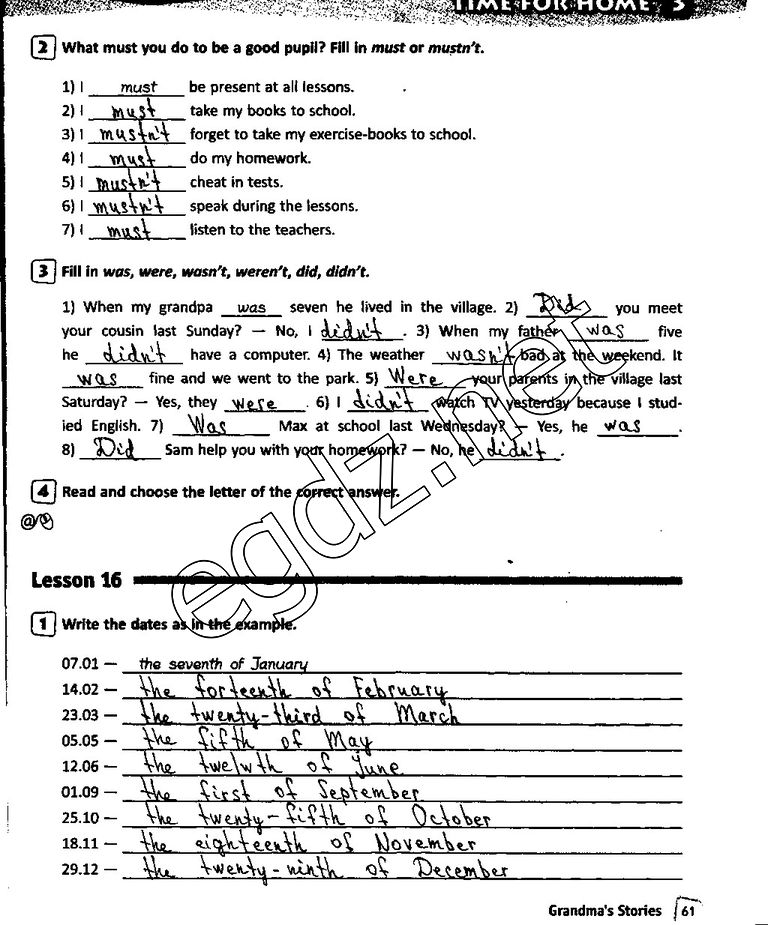 TIME FOR HOME 3
2 What must you do to be a good pupil? Fill in must or mustn't.
1) I must be present at all lessons.
2) I must take my books to school.
3) I mustn't forget to take my exercise-books to school.
4) I must do my homework.
5) I mustn't cheat in tests.
6) I mustn't speak during the lessons.
7) I must listen to the teachers.
3 Fill in was, were, wasn't, weren't, did, didn't.
1) When my grandpa was seven he lived in the village. 2) Did you meet
your cousin last Sunday? — No, I didn't . 3) When my father was five
he didn't have a computer. 4) The weather wasn't bad at the weekend. It
was fine and we went to the park. 5) Were your parents in the village last
Saturday? — Yes, they were . 6) I didn't watch TV yesterday because I stud-
ied English. 7) Was Max at school last Wednesday? — Yes, he was .
8) Did Sam help you with your homework? — No, he didn't .
4 Read and choose the letter of the correct answer.
egdz.net
Lesson 16
1 Write the dates as in the example.
07.01 — the seventh of January
14.02 — the forteenth of February
23.03 — the twenty-third of March
05.05 — the fifth of May
12.06 — the twelwth of June
01.09 — the first of September
25.10 — the twenty-fifth of October
18.11 — the eighteenth of November
29.12 — the twenty-ninth of December
Grandma's Stories 61